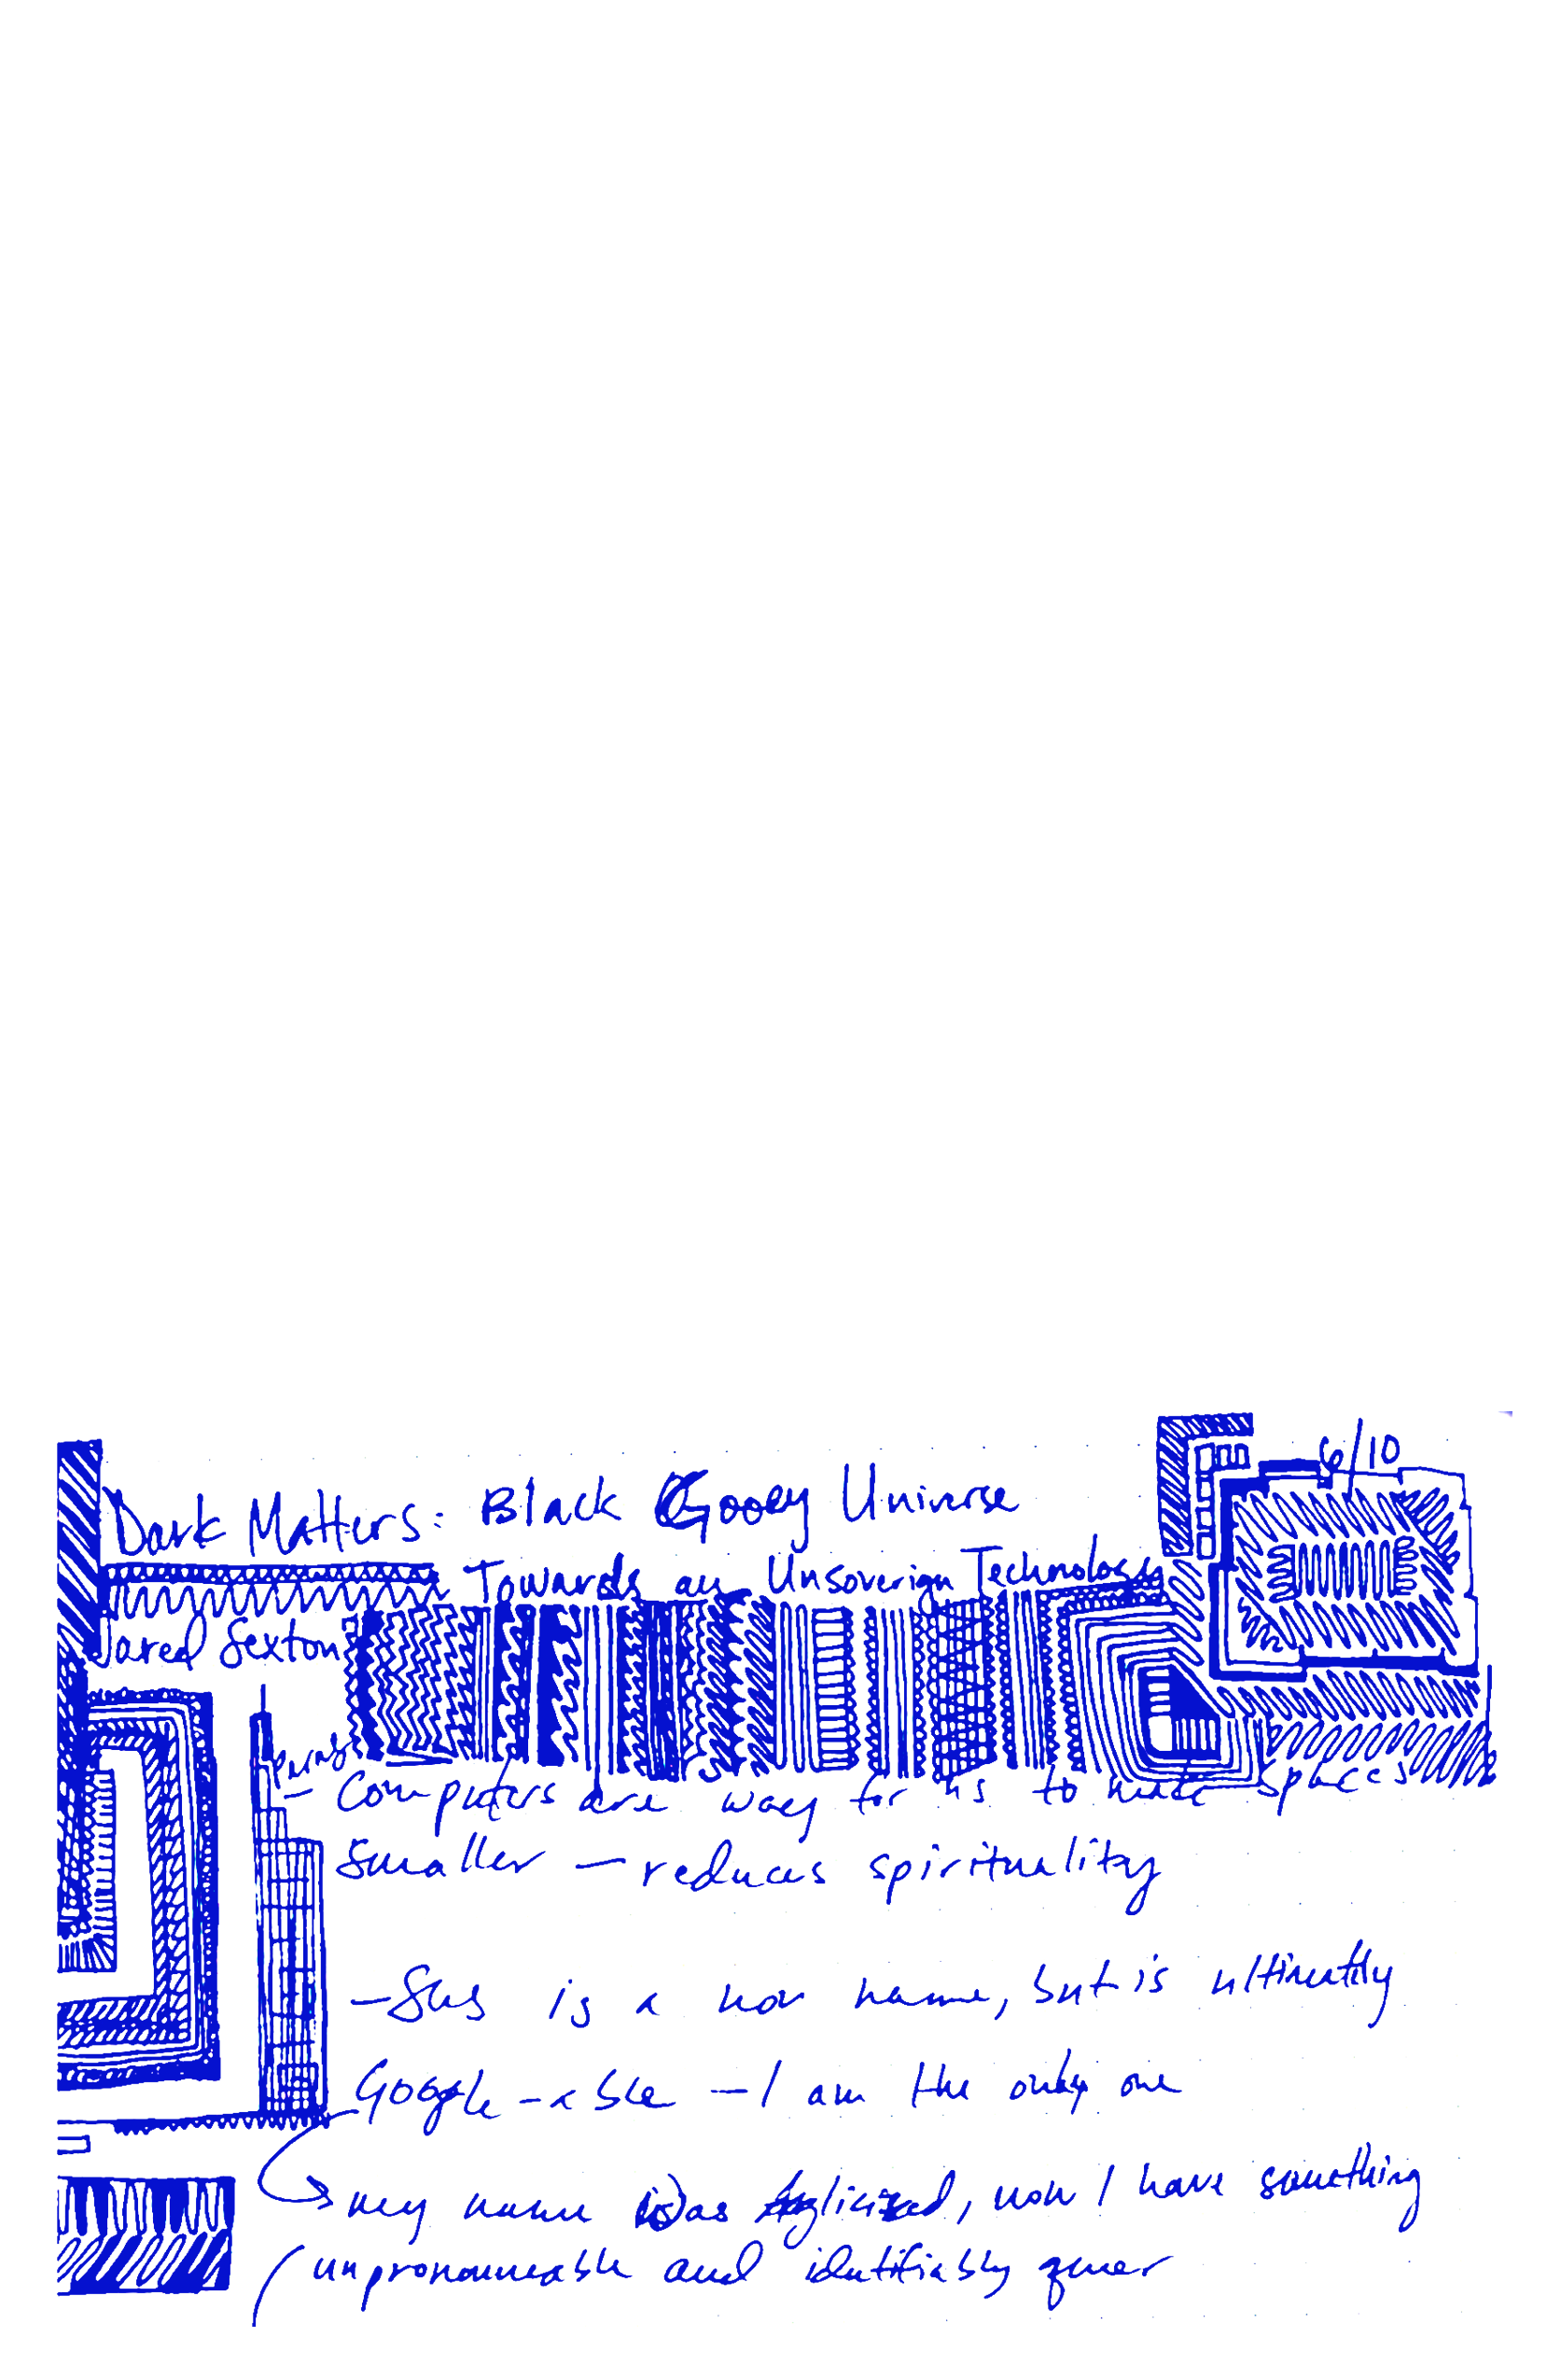 6/10
Dark Matters: Black Gooey Universe
Towards an Unsoverign Technology
Jared Sexton
- Computers are way for us to make spaces
smaller — reduces spirituality
- is a non name, but is ultimately
Google-able — I am the only one
my name was Anglicized, now I have something
unpronounceable and identifiably queer